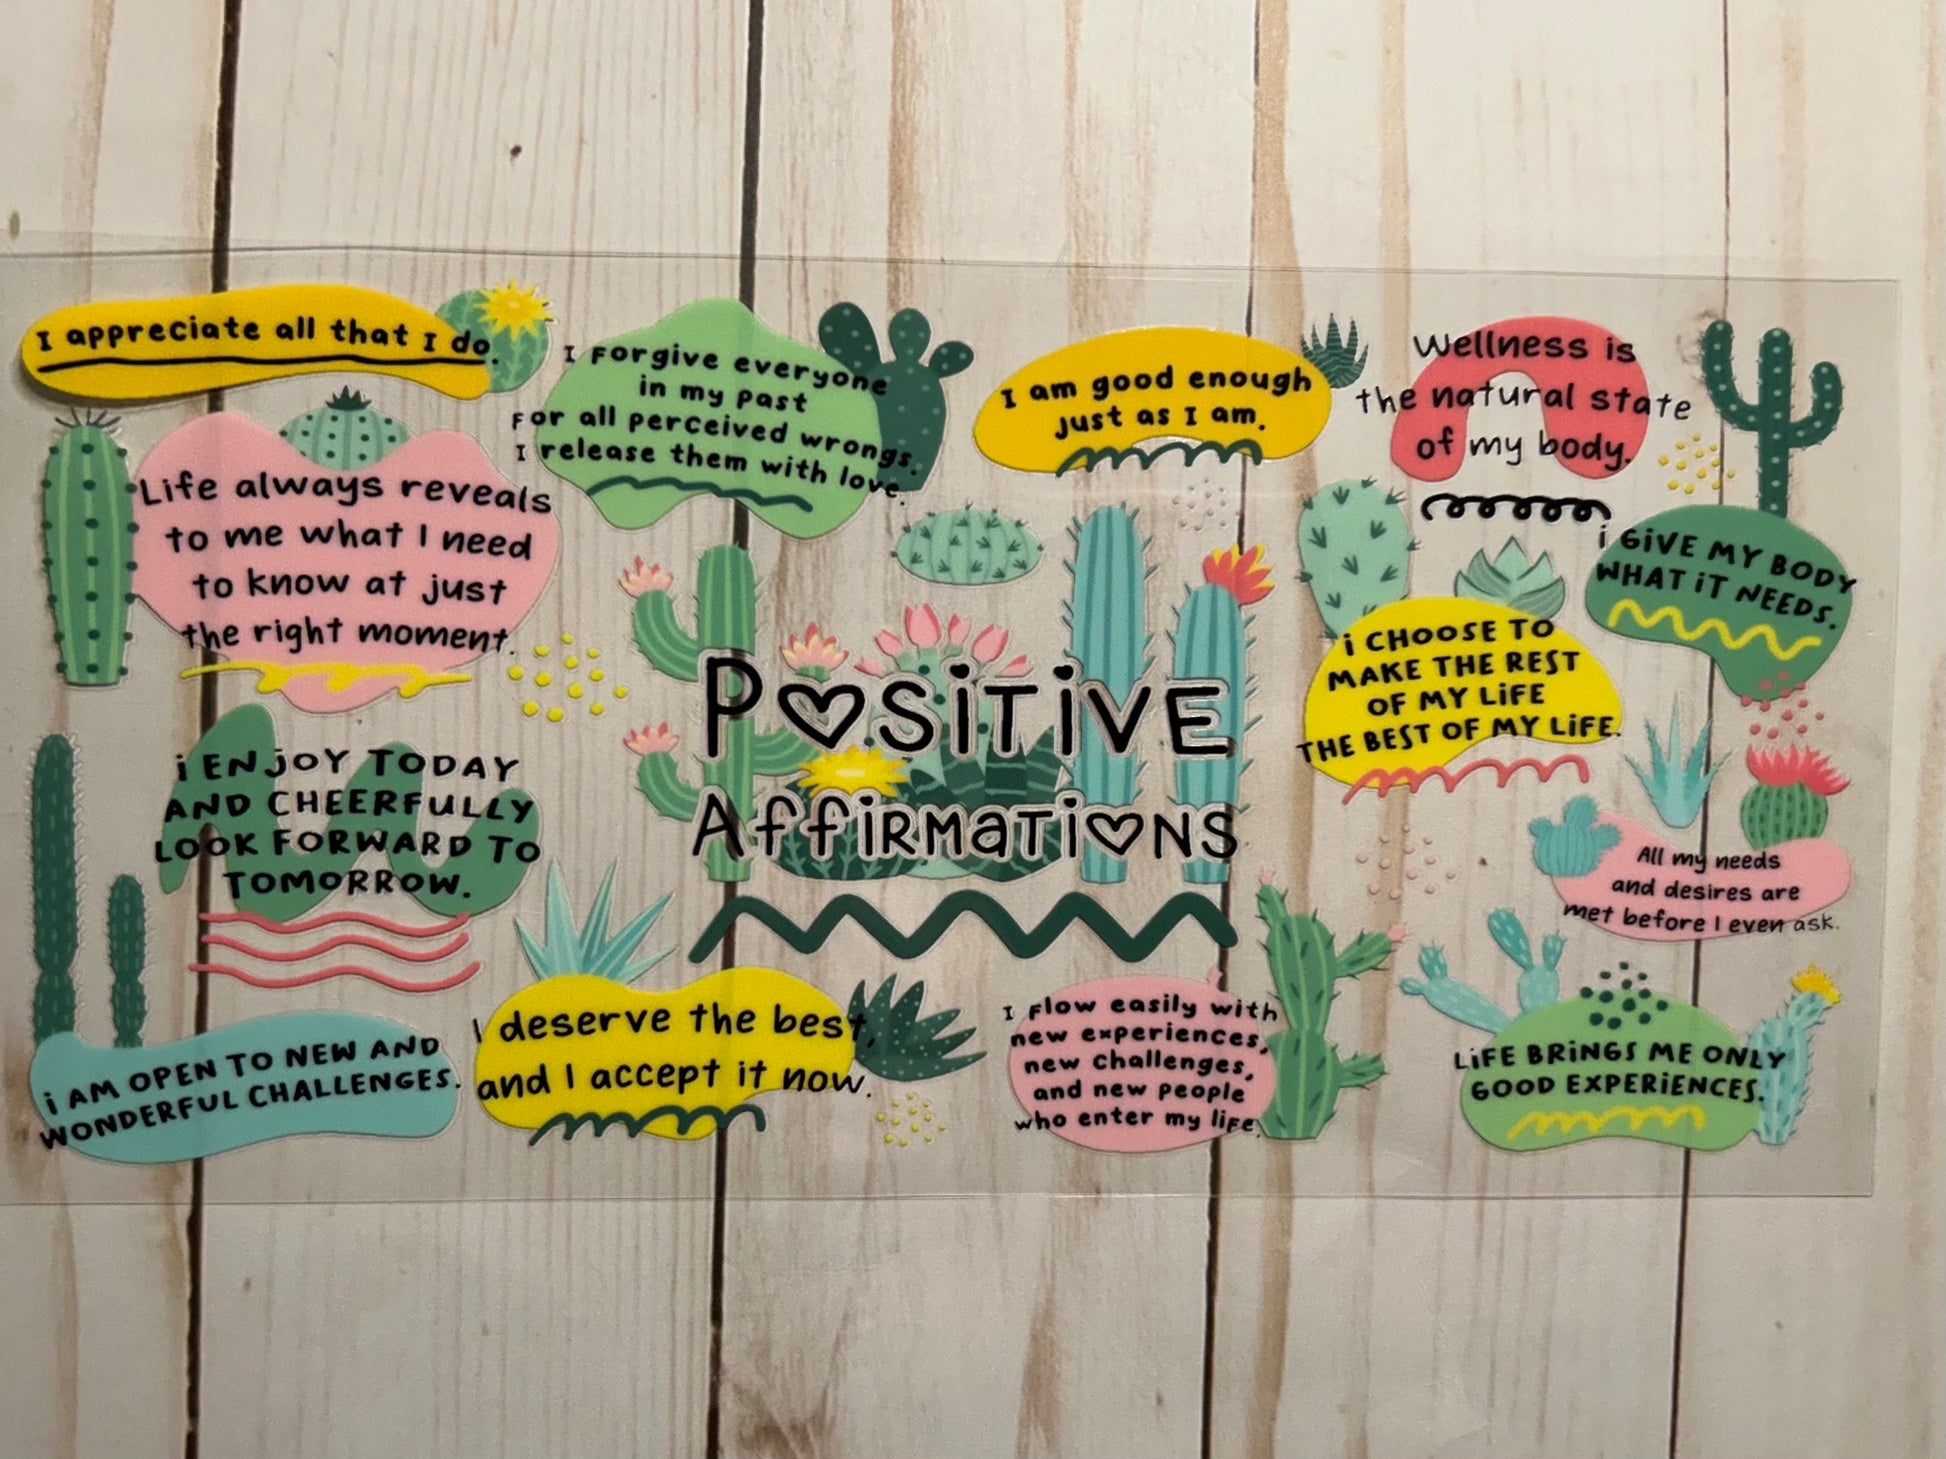 I appreciate all that I do.
I forgive everyone
in my past
for all perceived wrongs.
I release them with love.
I am good enough
just as I am.
Wellness is
the natural state
of my body.
Life always reveals
to me what I need
to know at just
the right moment.
i GiVE MY BODY
WHAT iT NEEDS.
i CHOOSE TO
MAKE THE REST
OF MY LiFE
THE BEST OF MY LiFE.
POSiTiVE
AffiRMaTiONS
i ENjOY TODAY
AND CHEERFULLY
LOOK FORWARD TO
TOMORROW.
All my needs
and desires are
met before I even ask.
i AM OPEN TO NEW AND
WONDERFUL CHALLENGES.
I deserve the best,
and I accept it now.
I flow easily with
new experiences,
new challenges,
and new people
who enter my life.
LiFE BRiNGS ME ONLY
GOOD EXPERiENCES.